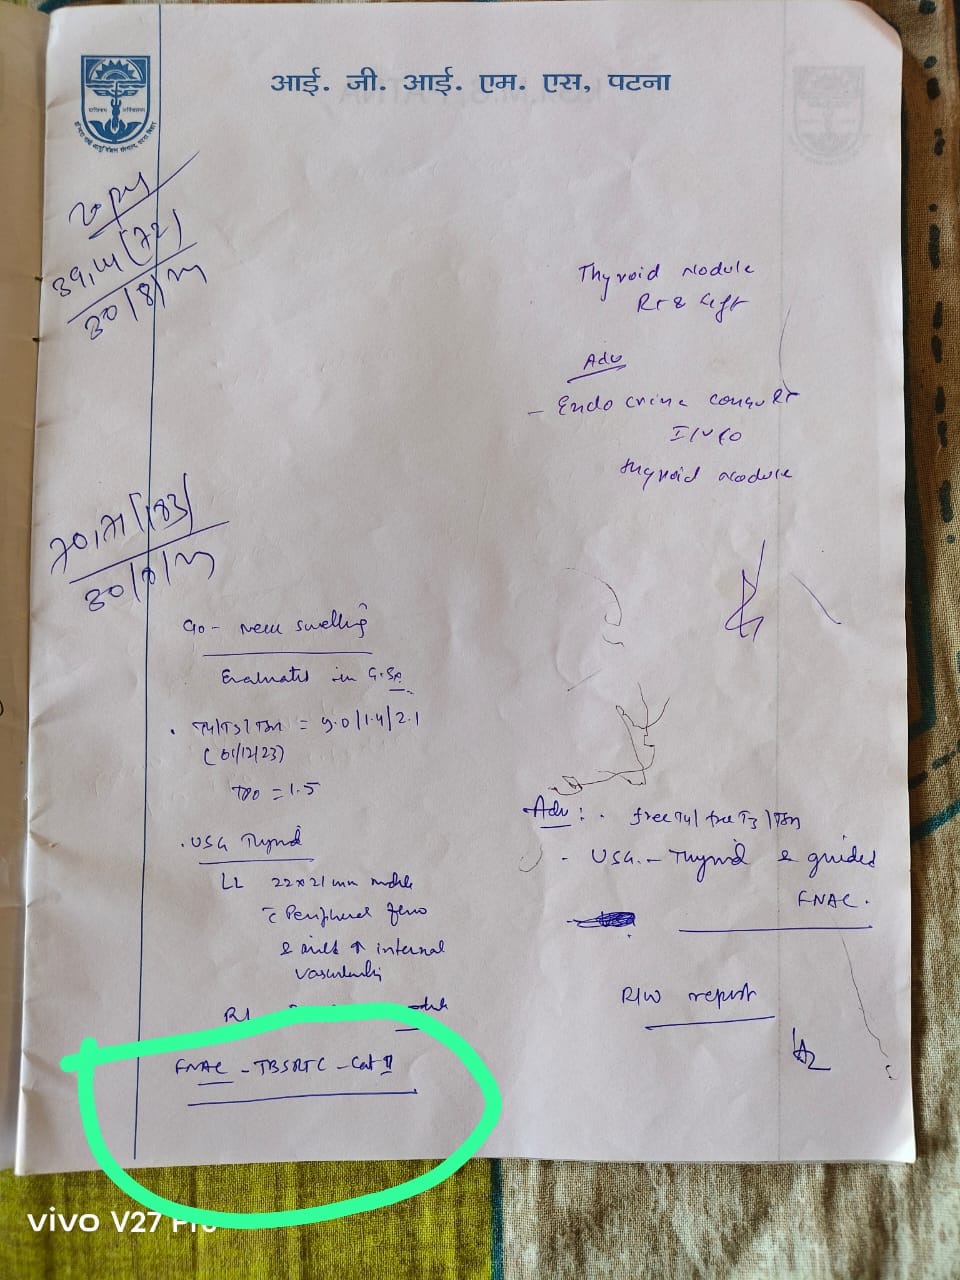 आई. जी. आई. एम. एस, पटना
39,14 (72)
30/8/24
Thyroid nodule
Rt & Left
Adv
- Endocrine consult
I/V/O
thyroid nodule
70,71 (183)
30/8/24
c/o - neck swelling
Evaluated in G.Sx
. T4/T3/TSH = 9.0/1.4/2.1
(01/12/23)
TPO = 1.5
. USG Thyroid
LL 22x21 mm nodule
c̄ Peripheral flow
& mild ↑ internal
vascularity
RL nodule
FNAC - TBSRTC - Cat II
Adv : . free T4/ free T3 /TSH
- USG. - Thyroid & guided
FNAC.
R/W report
vivo V27 Pro